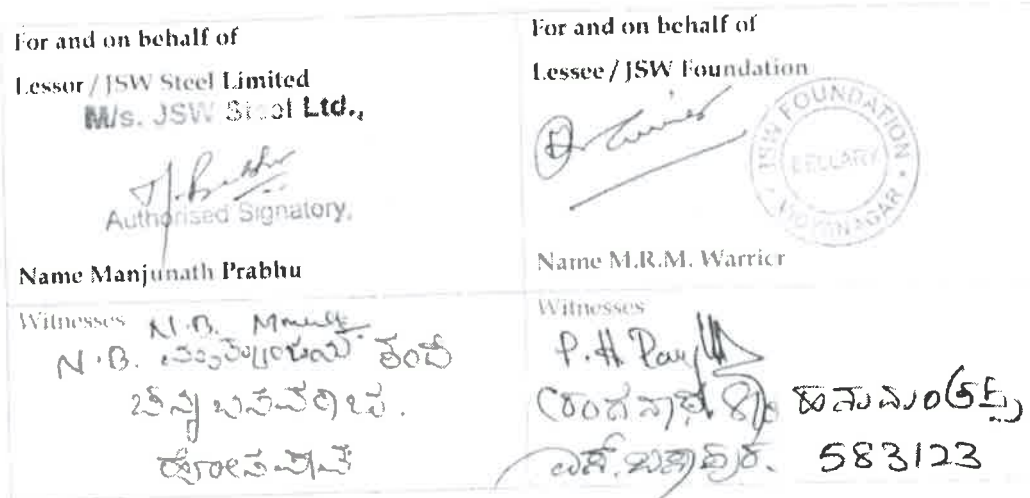 For and on behalf of
Lessor / JSW Steel Limited
M/s. JSW Steel Ltd.,
Authorised Signatory,
Name Manjunath Prabhu
Witnesses N.B.
N.B. ತಂದೆ
ಚೆನ್ನಬಸವರಾಜ.
For and on behalf of
Lessee / JSW Foundation
JSW FOUNDATION
BELLARY
VIDYANAGAR
Name M.R.M. Warrier
Witnesses
P.H
(ರಂಗನಾಥ S/o ಹನುಮಂತಪ್ಪ
583123